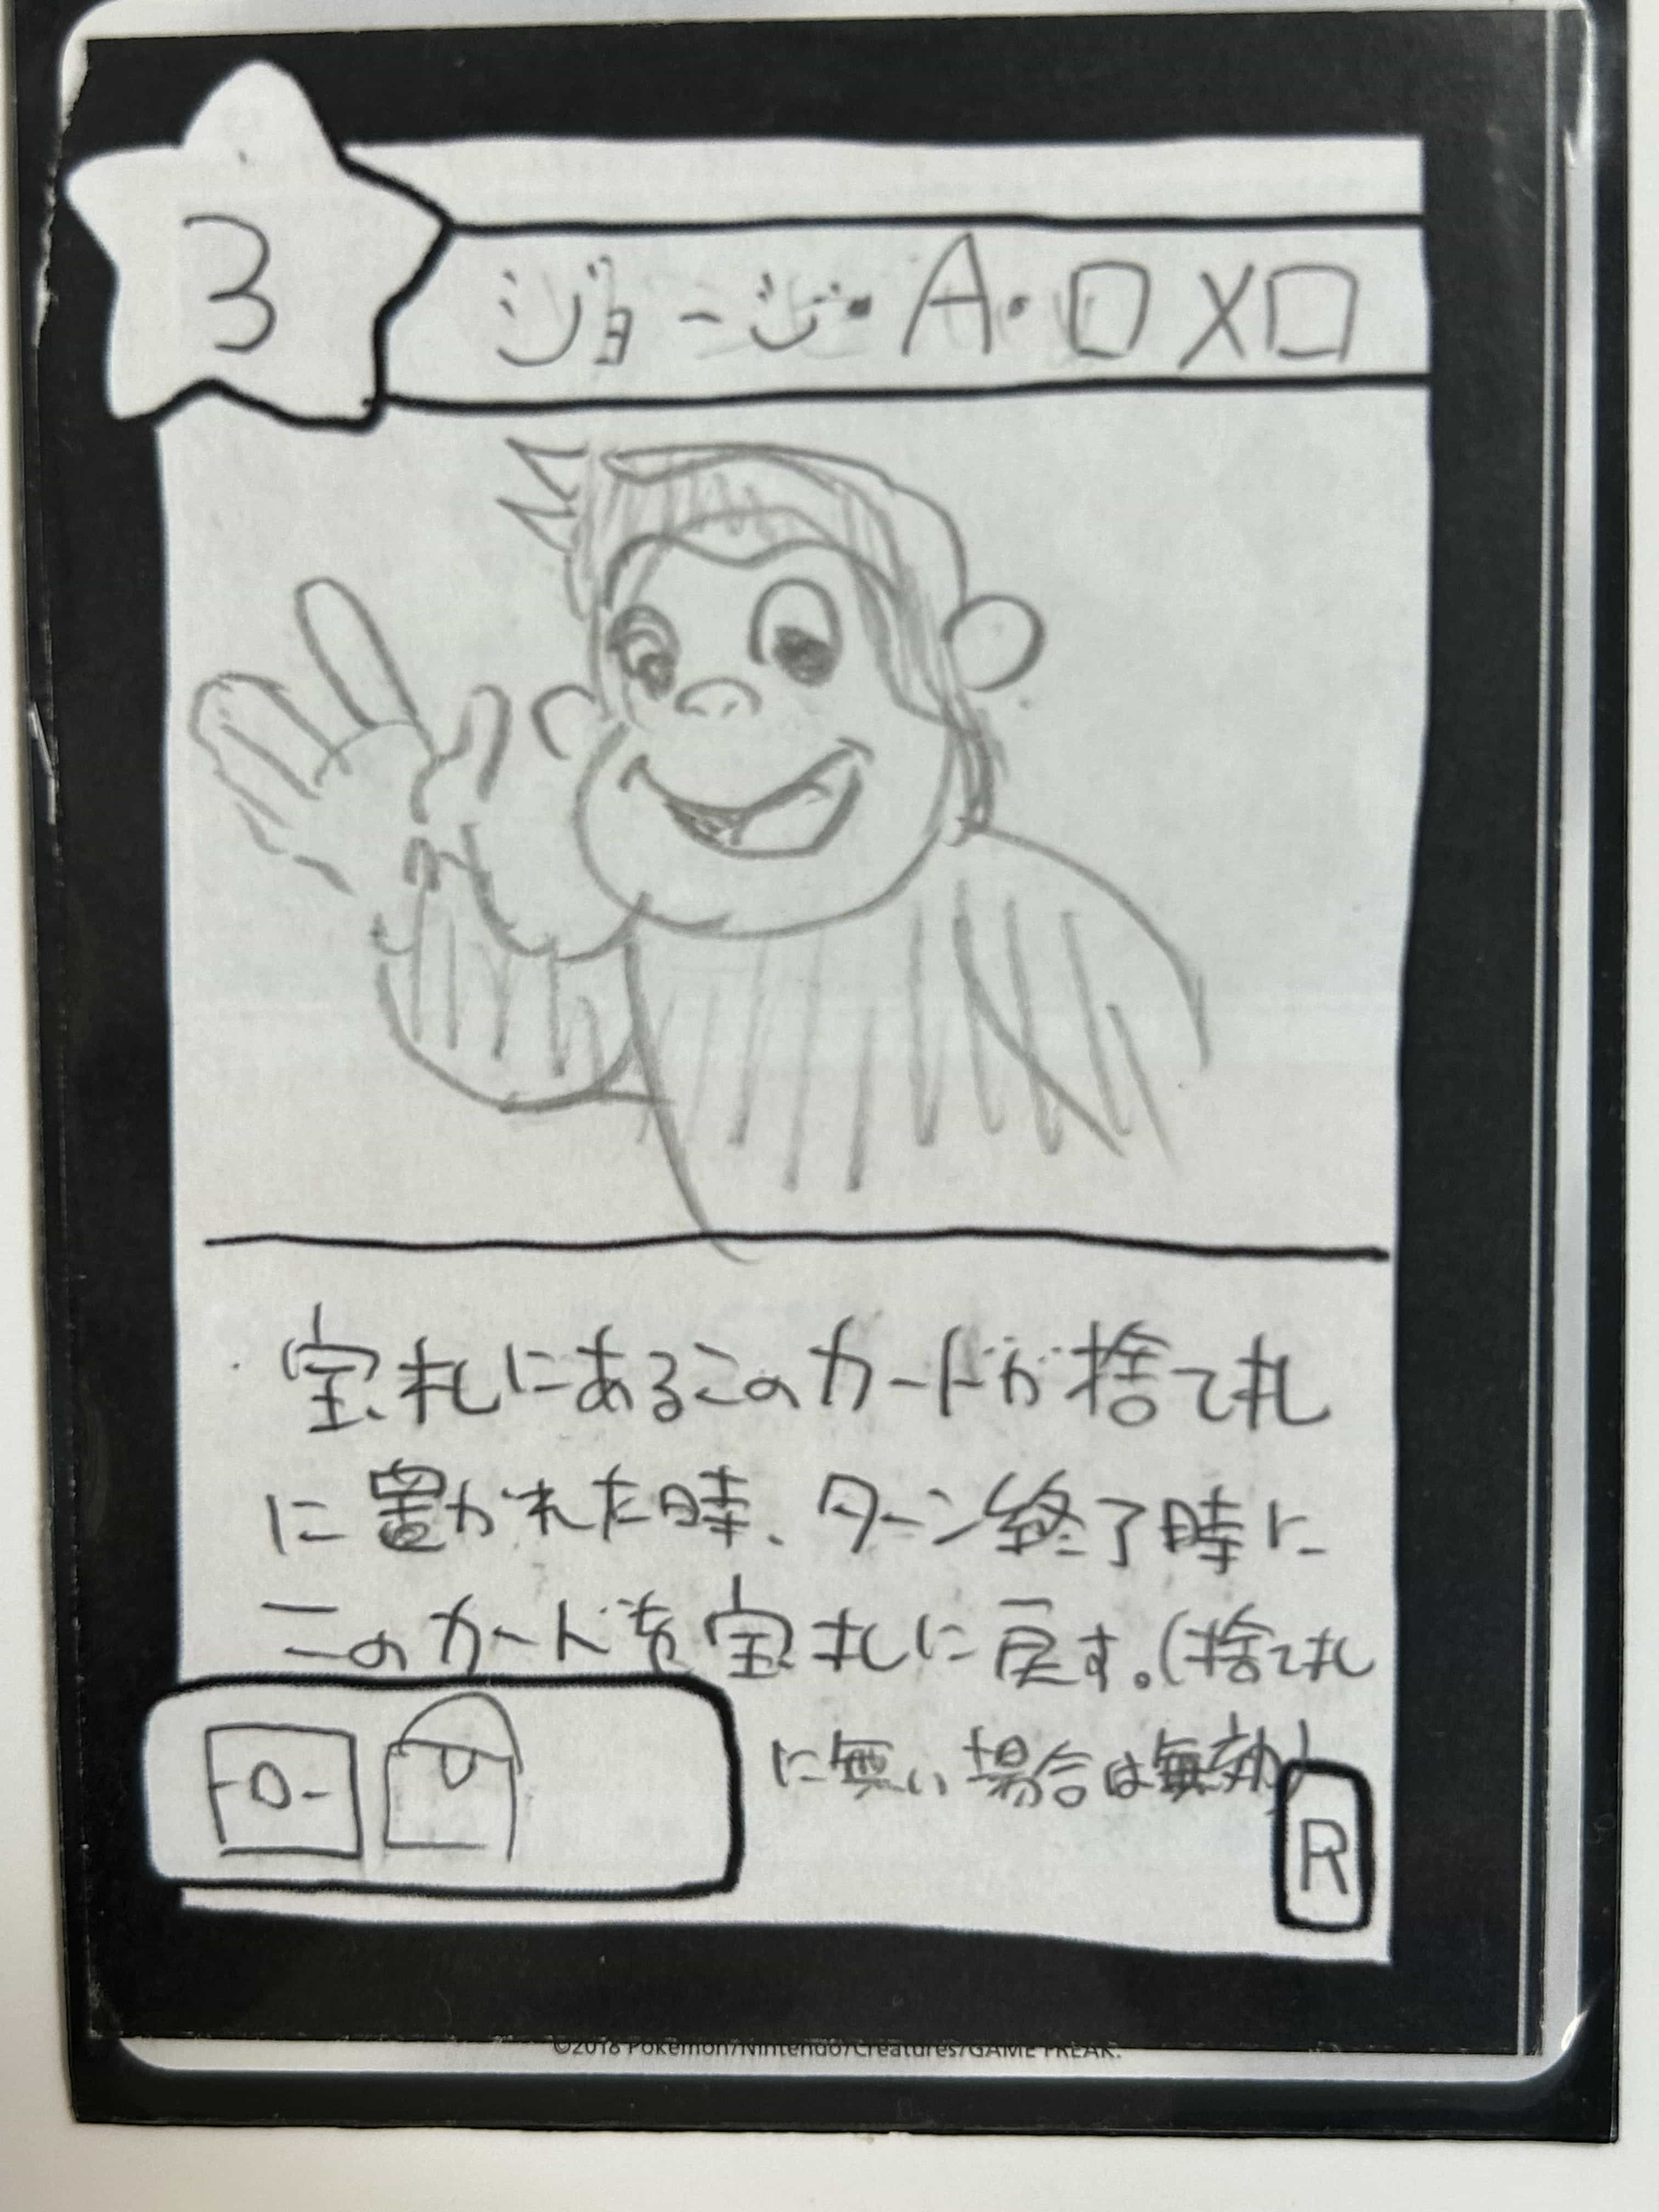 3
ジョージ・A・ロメロ
宝札にあるこのカードが捨て札
に置かれた時、ターン終了時に
このカードを宝札に戻す。(捨て札
に無い場合は無効)
R
©2018 Pokémon/Nintendo/Creatures/GAME FREAK.